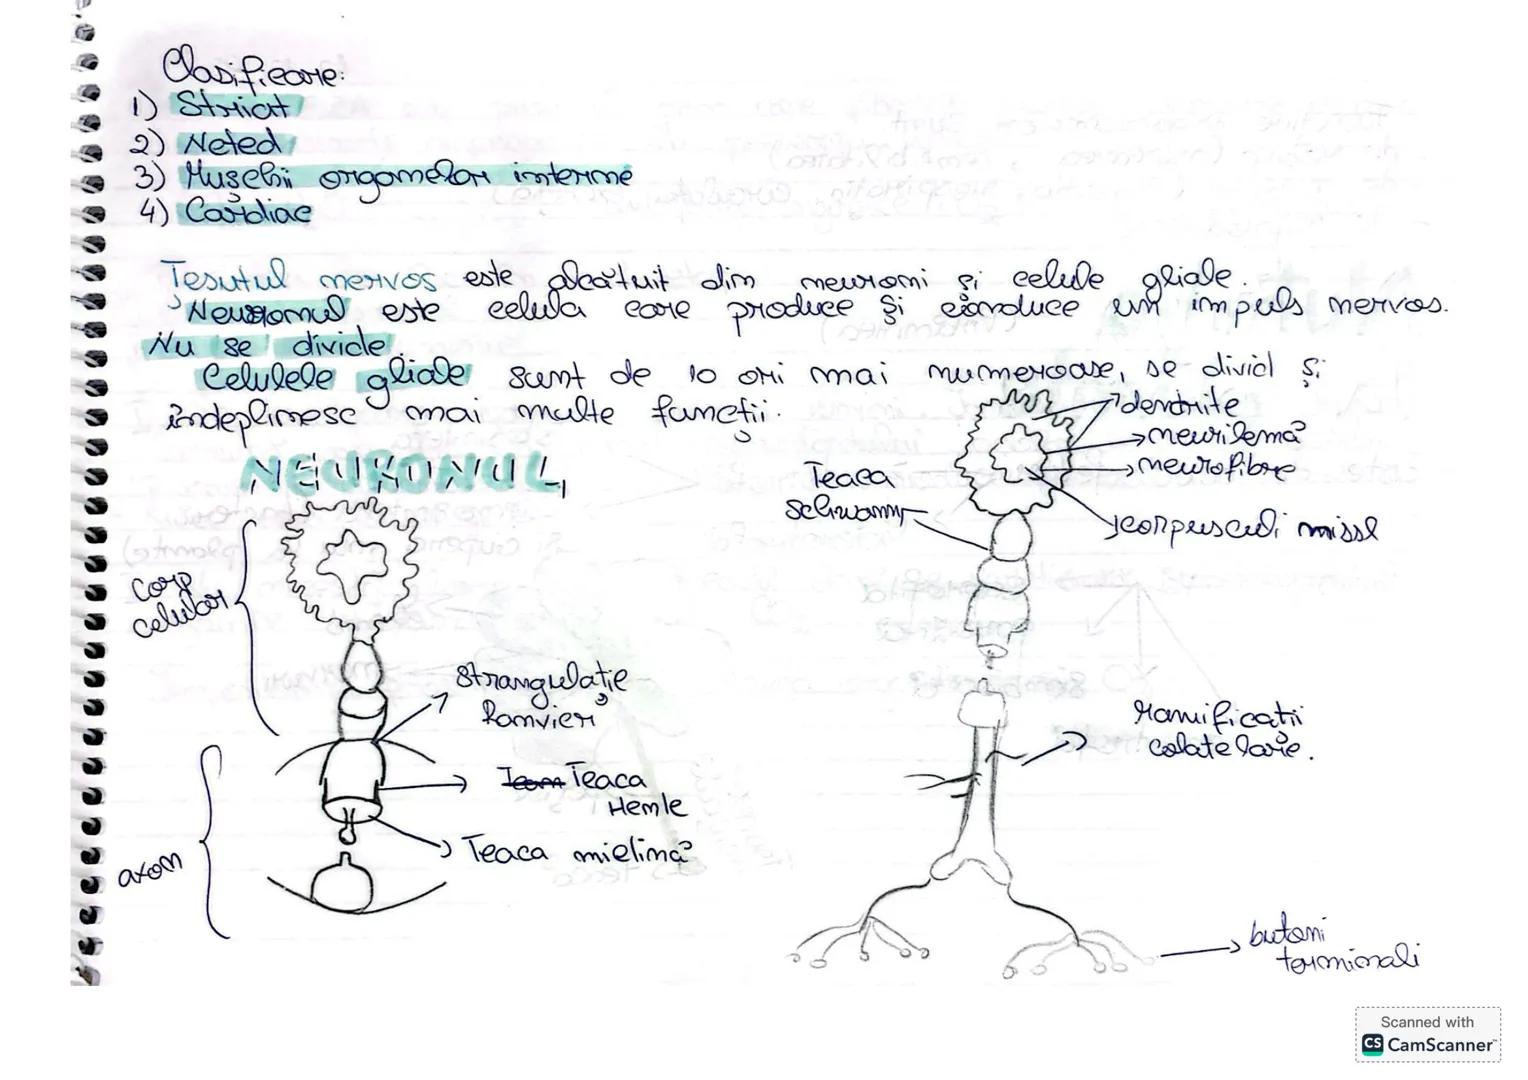 Clasificare:
1) Striat
2) Neted
3) Mușchii organelor interne
4) Cardiac
Țesutul nervos este alcătuit din neuroni și celule gliale.
Neuronul este celula care produce și conduce un impuls nervos.
Nu se divide.
Celulele gliale sunt de 10 ori mai numeroase, se divid și
îndeplinesc mai multe funcții.
NEURONUL
corp
celular
axon
Strangulație
Ranvier
Teaca
Henle
Teaca mielină
Teaca
schwann
dendrite
neurilemă
neurofibre
corpusculi nissl
ramificații
colaterale.
butoni
terminali
Scanned with
CS CamScanner